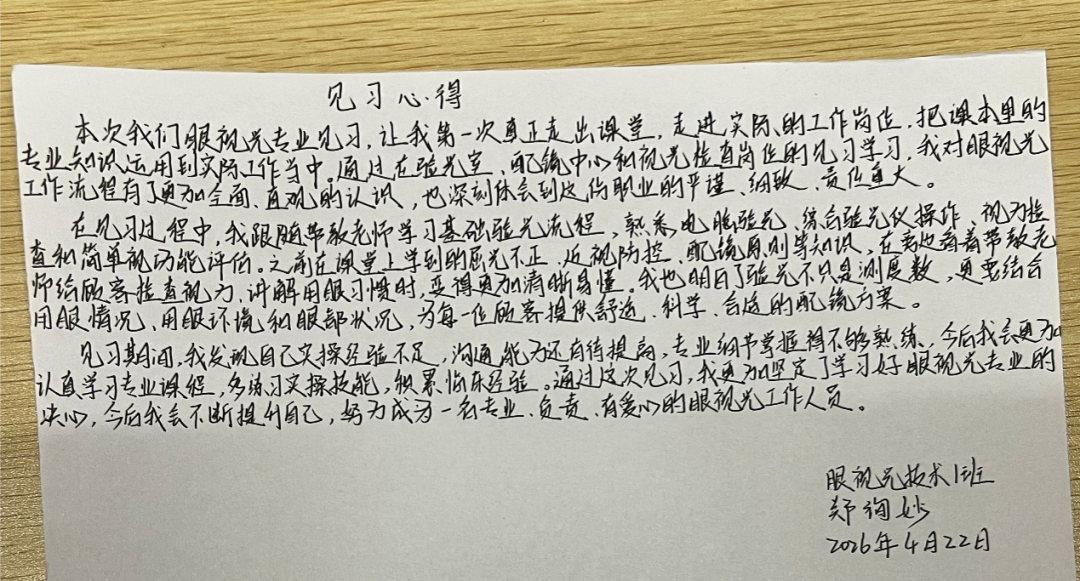 见习心得
本次我们眼视光专业见习，让我第一次真正走出课堂，走进实际的工作岗位，把课本里的
专业知识运用到实际工作当中。通过在验光室、配镜中心和视光检查岗位的见习学习，我对眼视光
工作流程有了更加全面、直观的认识，也深刻体会到这份职业的严谨、细致、责任重大。
在见习过程中，我跟随带教老师学习基础验光流程，熟悉电脑验光、综合验光仪操作、视力检
查和简单视功能评估。之前在课堂上学到的屈光不正、近视防控、配镜原则等知识，在旁边看着带教老
师给顾客检查视力、讲解用眼习惯时，变得更加清晰易懂。我也明白了验光不只是测度数，更要结合
用眼情况、用眼环境和眼部状况，为每一位顾客提供舒适、科学、合适的配镜方案。
见习期间，我发现自己实操经验不足，沟通能力还有待提高，专业细节掌握得不够熟练，今后我会更加
认真学习专业课程，多练习实操技能，积累临床经验。通过这次见习，我更加坚定了学习好眼视光专业的
决心，今后我会不断提升自己，努力成为一名专业、负责、有爱心的眼视光工作人员。
眼视光技术1班
郑询妙
2026年4月22日